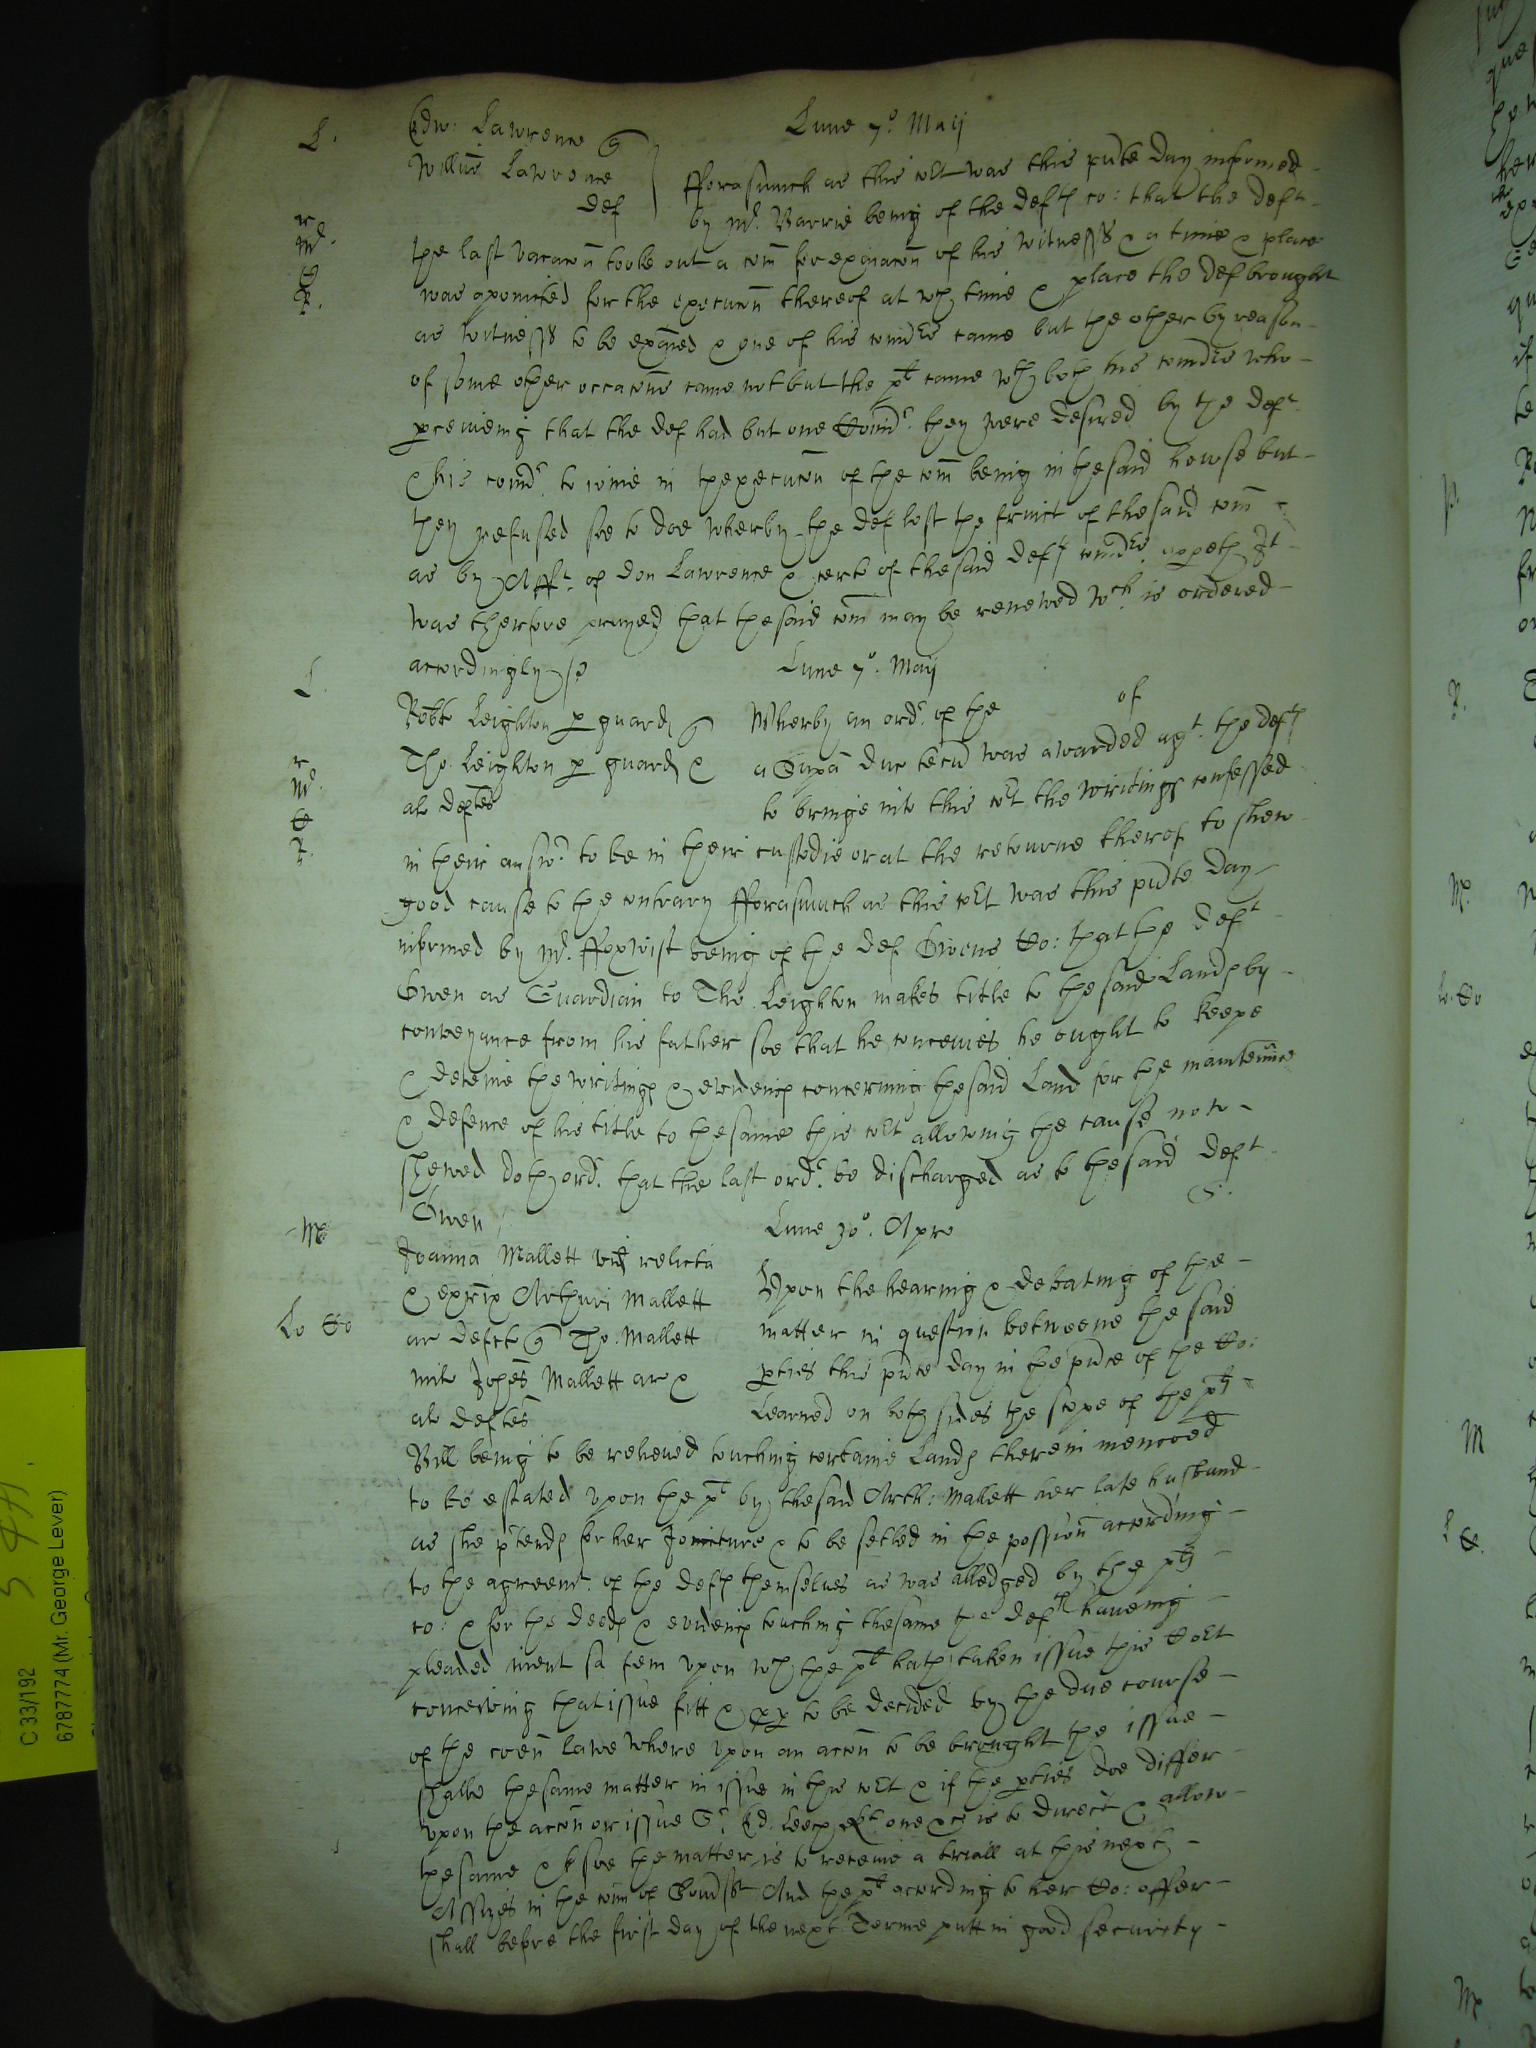 L.
Edw: Lawrence q
Lune 7o Maij
Willms Lawrence
def
fforasmuch as this Co:rt was this pnte day informed
by Mr. Barrie being of the defts co: that the deft
r
Mr.
the last vacacon tooke out a com for exiacon of his witnesses & a time & place
was apointed for the execucon thereof at wch time & place the def brought
R.
as witnesses to be exaied & one of his comrs came but the other by reason
of some other occacons came not but the plt came wth both his comrs who
perceiveing that the def had but one Comr. they were desired by the deft.
& his comr. to ioine in thexecucon of the com being in the said howse but
they refused soe to doe wherby the def lost the fruict of the said com
as by Afft. of Don Lawrence & certt of the said defts comrs appeth It
was therfore prayed that the said com may be renewed wch. is ordered
accordingly
L.
Lune 7o. Maij
Robte Leighton p guard q
Wherby an ordr. of the of
Tho. Leighton p guard &
a Supa duc tecu was awarded agt. the defts
al deftes
to bringe into this Co:rt the writings confessed
r
Mr.
R.
in their answr. to be in their custodie or at the retourne therof to shew
good cause to the contrary fforasmuch as this Co:rt was this pnte day
informed by Mr. ffoxwist being of the def Owens Co: that the deft
Owen as Guardian to Tho. Leighton makes title to the said Lands by
conveyance from his father soe that he conceives he ought to keepe
& deteine the writings & evidences concerning the said Land for the maintennce
& defence of his title to the same this Co:rt allowing the cause now
shewed doth ordr. that the last ordr. be discharged as to the said deft
Owen
S.
Mr
Lune 30o. Apre
Joanna Mallett vid relicta
& exrix Arthuri Mallett
Upon the hearing & debating of the
Lo Co
ar defct q Tho: Mallett
matter in question betweene the said
milt Johes Mallett ar &
pties this pnte day in the pnce of the Co:
al deftes
Learned on both sides the scope of the plts
Bill being to be releived touching certaine Lands therein mencoed
to be estated upon the plt by the said Arth: Mallett her late husband
as she ptends for her Joincture & to be setled in the possion according
to the agreemt. of the defts themselves as was alledged by the plts
co: & for the deeds & evidences touching the same the defts haveing
pleaded ment sa fem upon wch the plt hath taken issue this Co:rt
conceiving that issue fitt & pp to be decided by the due course
of the coen lawe where upon an acon to be brought the issue
shalbe the same matter in issue in this Co:rt & if the pties doe differ
upon the acon or issue Sr. Ed. Leech Kt one &c is to direct & allow
the same & soe the matter is to receive a triall at this next
Assizes in the com of Somsett And the plt according to her Co: offer
shall before the first day of the next Terme putt in good security
C 33/192
6787774 (Mr. George Lever)